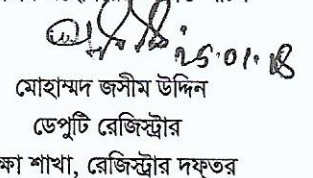 25.01.18
মোহাম্মদ জসীম উদ্দিন
ডেপুটি রেজিস্ট্রার
ক্ষা শাখা, রেজিস্ট্রার দফতর